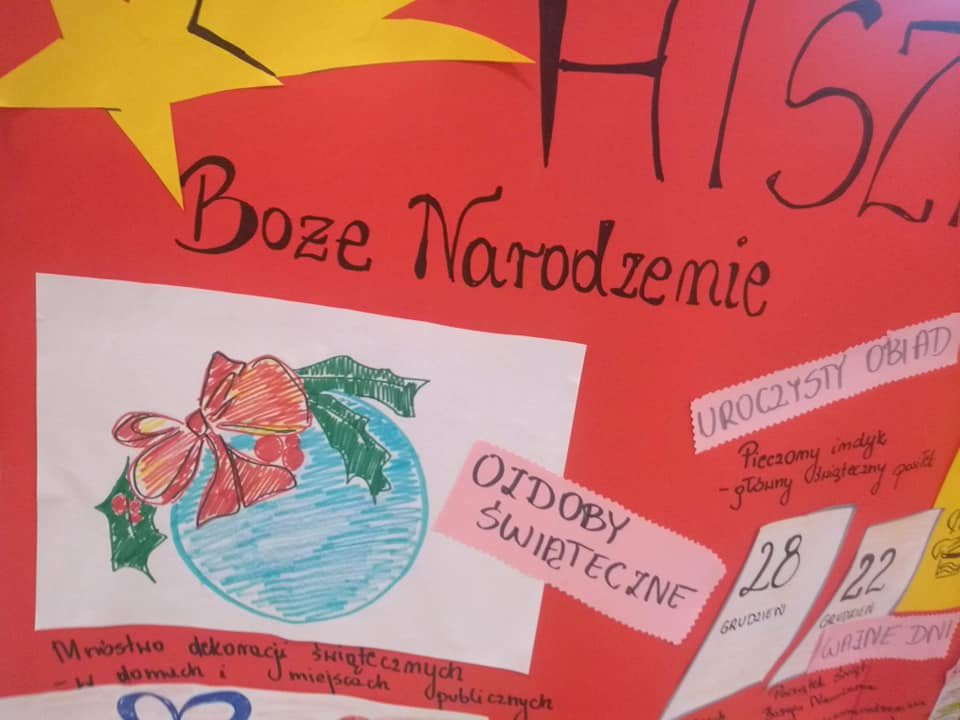 HISZ
Boże Narodzenie
UROCZYSTY OBIAD
Pieczony indyk
- główny świąteczny posiłek
OZDOBY
ŚWIĄTECZNE
28
GRUDZIEŃ
22
GRUDZIEŃ
WAŻNE DNI
Początek Świąt
Bożego Narodzenia
Mnóstwo dekoracji świątecznych
- w domach i miejscach publicznych